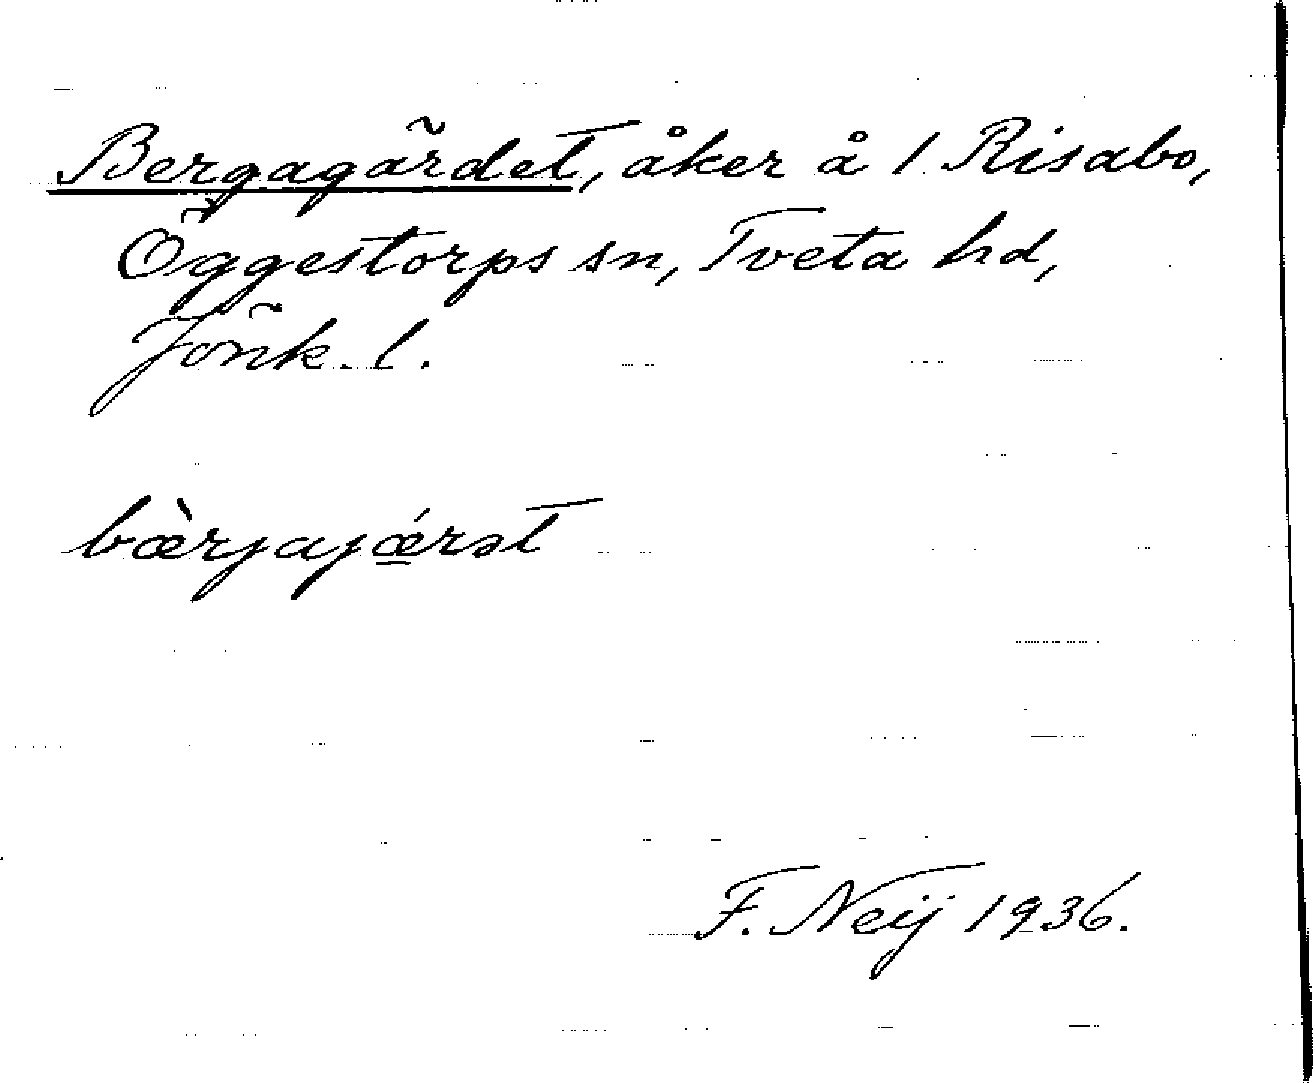 Bergagärdet, åker å 1 Risabo,
Öggestorps sn, Tveta hd,
Jönk. l.
bæ̀rjajǽ̲rət
F. Neij 1936.